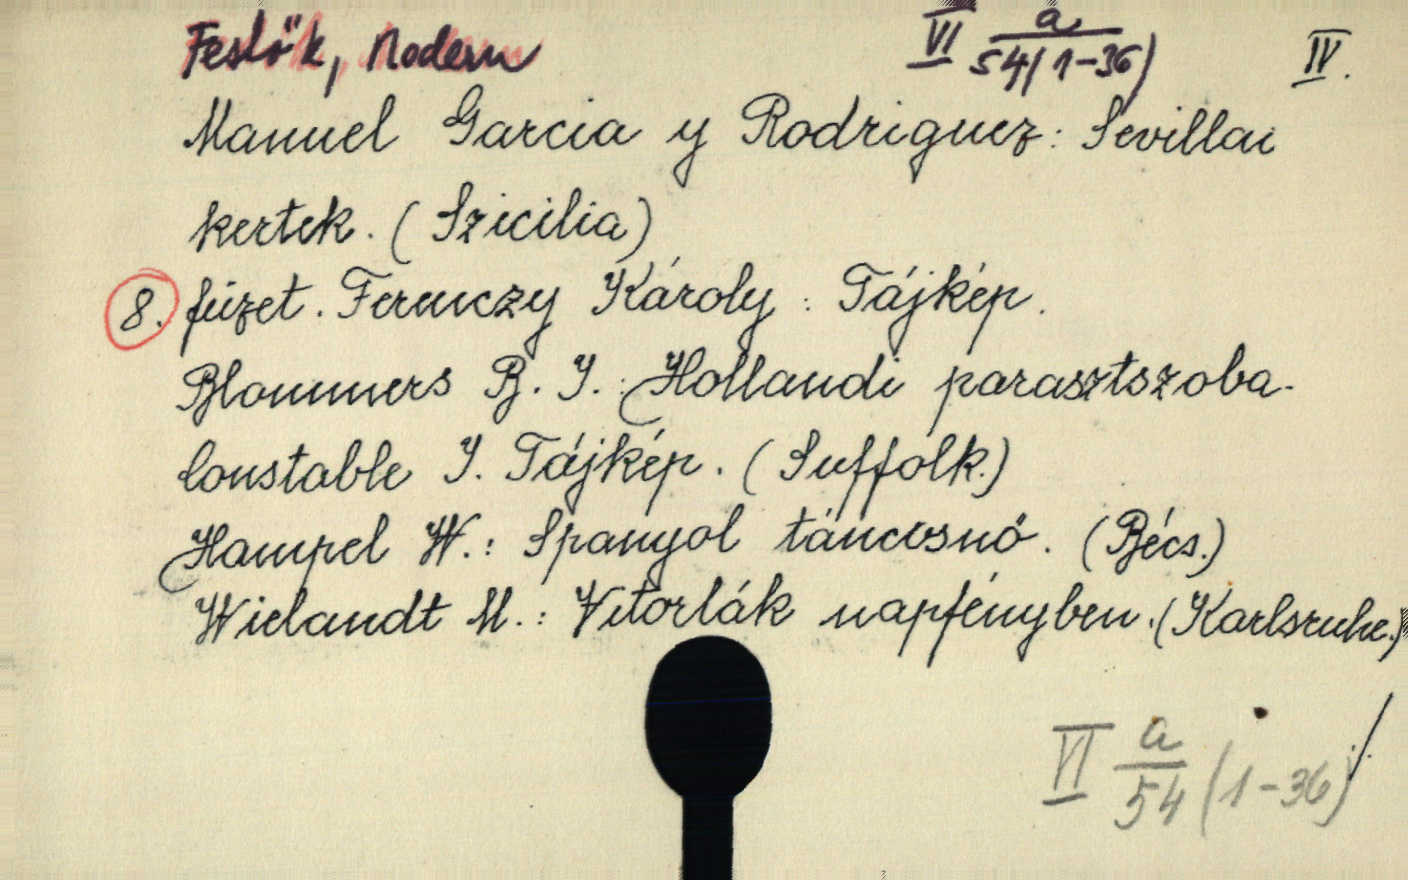 Festők, Modern VI a/54(1-36) IV.
Manuel Garcia y Rodriguez: Sevillai
kertek. (Szicilia)
8. füzet. Ferenczy Károly: Tájkép.
Blommers B. J.: Hollandi parasztszoba.
Constable J. Tájkép. (Suffolk.)
Hampel W.: Spanyol táncosnő. (Bécs.)
Wielandt M.: Vitorlák napfényben. (Karlsruhe.)
VI a/54 (1-36)